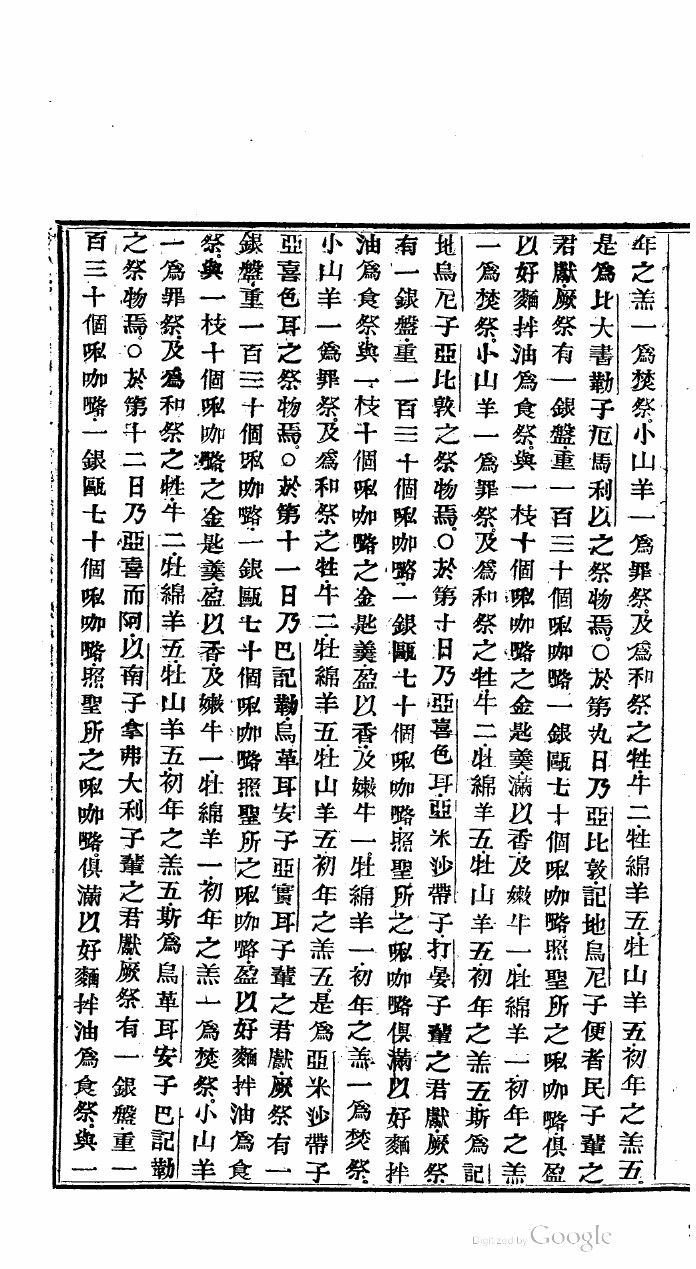 年之羔一爲焚祭。小山羊一爲罪祭。及爲和祭之牲牛二牡綿羊五。牡山羊五。初年之羔五。
是爲比大書勒子厄馬利以之祭物焉。○於第九日乃亞比敦。記地烏尼子便者民子輩之
君獻厥祭有一銀盤重一百三十個㖿咖略一銀甌七十個㖿咖略照聖所之㖿咖略俱盈
以好麵拌油爲食祭。與一枝十個㖿咖略之金匙羹滿以香及嫩牛一牡綿羊一初年之羔
一爲焚祭。小山羊一爲罪祭。及爲和祭之牲牛二牡綿羊五牡山羊五初年之羔五。斯爲記
地烏尼子亞比敦之祭物焉。○於第十日乃亞喜色耳亞米沙帶子。打晏子輩之君獻厥祭
有一銀盤重一百三十個㖿咖略一銀甌七十個㖿咖略照聖所之㖿咖略俱滿以好麵拌
油爲食祭。與一枝十個㖿咖略之金匙羹盈以香。及嫩牛一牡綿羊一初年之羔一爲焚祭。
小山羊一爲罪祭及爲和祭之牲牛二牡綿羊五牡山羊五初年之羔五。是爲亞米沙帶子
亞喜色耳之祭物焉。○於第十一日乃巴記勒烏革耳安子亞實耳子輩之君獻厥祭有一
銀盤重一百三十個㖿咖略一銀甌七十個㖿咖略照聖所之㖿咖略盈以好麵拌油爲食
祭。與一枝十個㖿咖略之金匙羹盈以香及嫩牛一牡綿羊一初年之羔一爲焚祭。小山羊
一爲罪祭及爲和祭之牲牛二牡綿羊五牡山羊五初年之羔五。斯爲烏革耳安子巴記勒
之祭物焉。○於第十二日乃亞喜而阿。以南子拿弗大利子輩之君獻厥祭有一銀盤重一
百三十個㖿咖略一銀甌七十個㖿咖略照聖所之㖿咖略。俱滿以好麵拌油爲食祭。與一
Digitized by Google